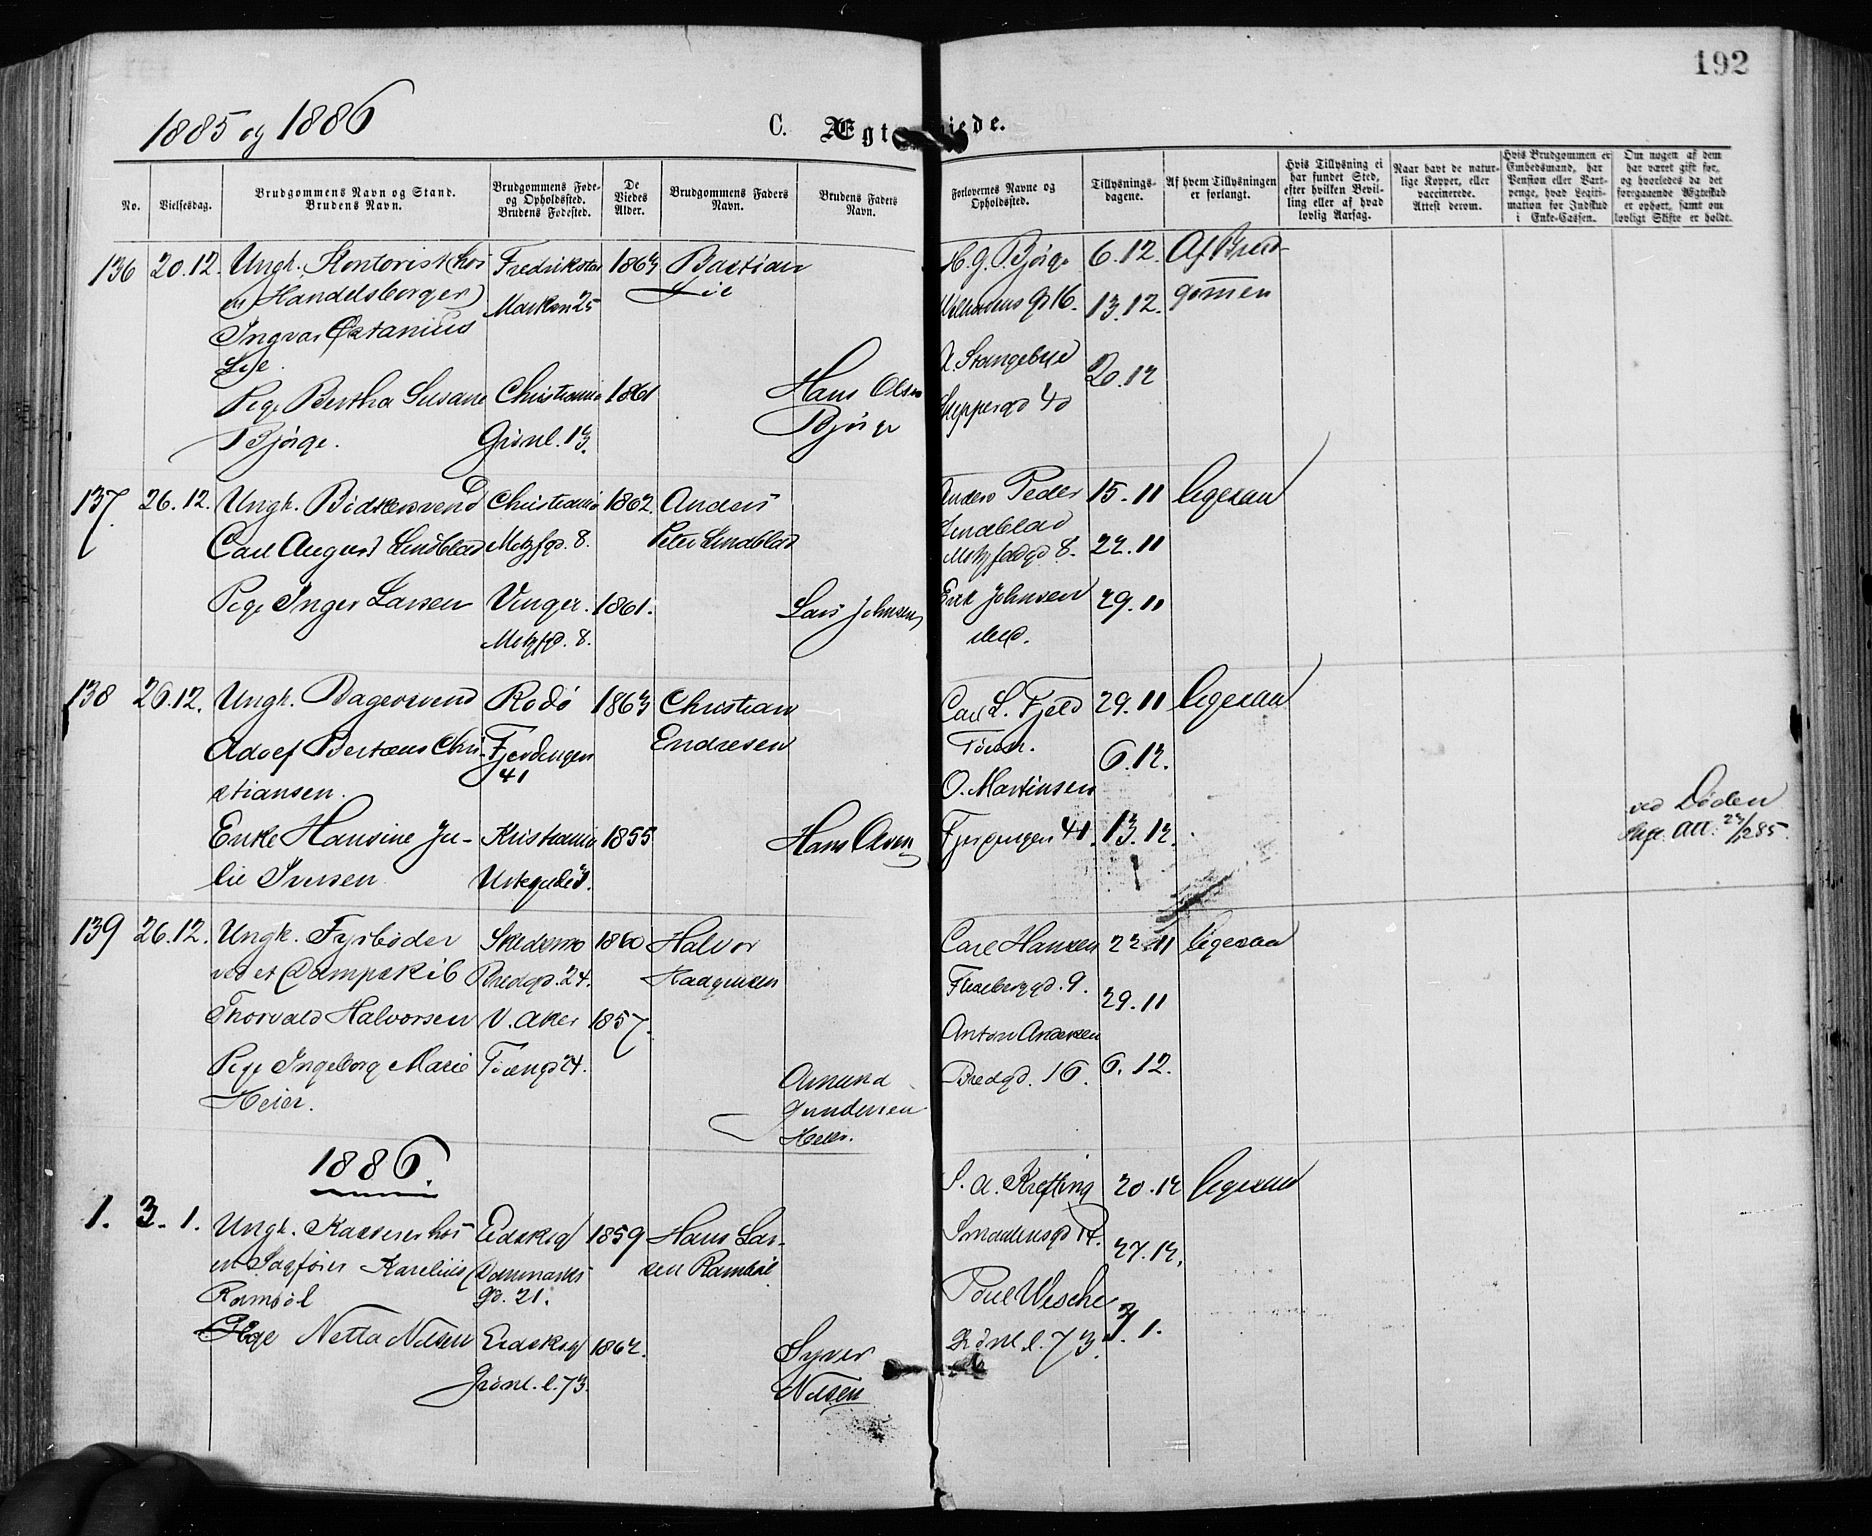 192
1885 og 1886
C. Ægt viede.
No.
Vielsesdag.
Brudgommens Navn og Stand.
Brudens Navn.
Brudgommens Føde-
og Opholdssted.
Brudens Fødested.
De
Viedes
Alder.
Brudgommens Faders
Navn.
Brudens Faders
Navn.
Forlovernes Navne og
Opholdsted.
Tillysnings-
dagene.
Af hvem Tillysningen
er forlangt.
Hvis Tillysning ei
har fundet Sted,
efter hvilken Bevil-
ling eller af hvad
lovlig Aarsag.
Naar havt de natur-
lige Kopper, eller
vaccinerede.
Attest derom.
Hvis Brudgommen er
Embedsmand, har
Pension eller Vart-
penge, hvad Legiti-
mation for Indskud
i Enke-Cassen.
Om nogen af dem
har været gift før,
og hvorledes da det
foregaaende Ægteskab
er ophørt, samt om
lovligt Skifte er holdt.
136 20.12. Ungk. Kontorist (hos
en Handelsborger)
Ingvar Lie
Pige Bertha Susane
Bjørge.
Fredrikstad
Marken 25
Christiania
Grønl. 13.
1863
1861
Bastian
Lie
Hans Olsen
Bjørge
H. G. Bjørge
gd 16.
A. Stangebye
Skippergd 4d
6.12.
13.12.
20.12
Af Brud-
gommen
137 26.12. Ungk. Bødkersvend
Carl August Lindblad
Pige Inger Larsen
Christiania
Motzfgd. 8.
Vinger.
Motzfgd. 8.
1862
1861.
Anders
Peter Lindblad
Lars Johnsen
Anders Peder
Lindblad
Motzfeldgd 8.
Erik Johnsen
ibid.
15.11
22.11
29.11
ligesaa
138 26.12. Ungk. Bagersvend
Adolf Chri-
stiansen.
Enke Hansine Ju-
lie Iversen
Rødø
Fjerdingen
41
Kristiania
1863
1855
Christian
Endresen
Hans Olsen
Carl L. Fjeld
O. Martinsen
Fjerdingen 41.
29.11
6.12.
13.12.
ligesaa
ved Døden
Skfr. Att. 285.
139 26.12. Ungk. Fyrbøder
ved et Dampskib
Thorvald Halvorsen
Pige Ingeborg Marie
Heier.
Skedsmo
Bredgd. 24.
V. Aker
24.
1860
1857.
Halvor
Haagensen
Amund
Gundersen
Heier.
Carl Hansen
9.
Anton Andersen
Bredgd. 16.
22.11
29.11
6.12.
ligesaa
1886.
1. 3.1. Ungk. Kasserer hos
en Sagfører Karelius
Rambøl
Pige Netta Nilsen
Eidskog
Danmarks
gd. 21.
Eidskog
Grønl. l. 73.
1859
1862.
Hans Lar-
sen Rambøl
Syver
Nilsen
S. A. Krefting
Smaalensgd 12.
Poul Wesche
Grønl. l. 73.
20.12
27.12.
3.1.
ligesaa